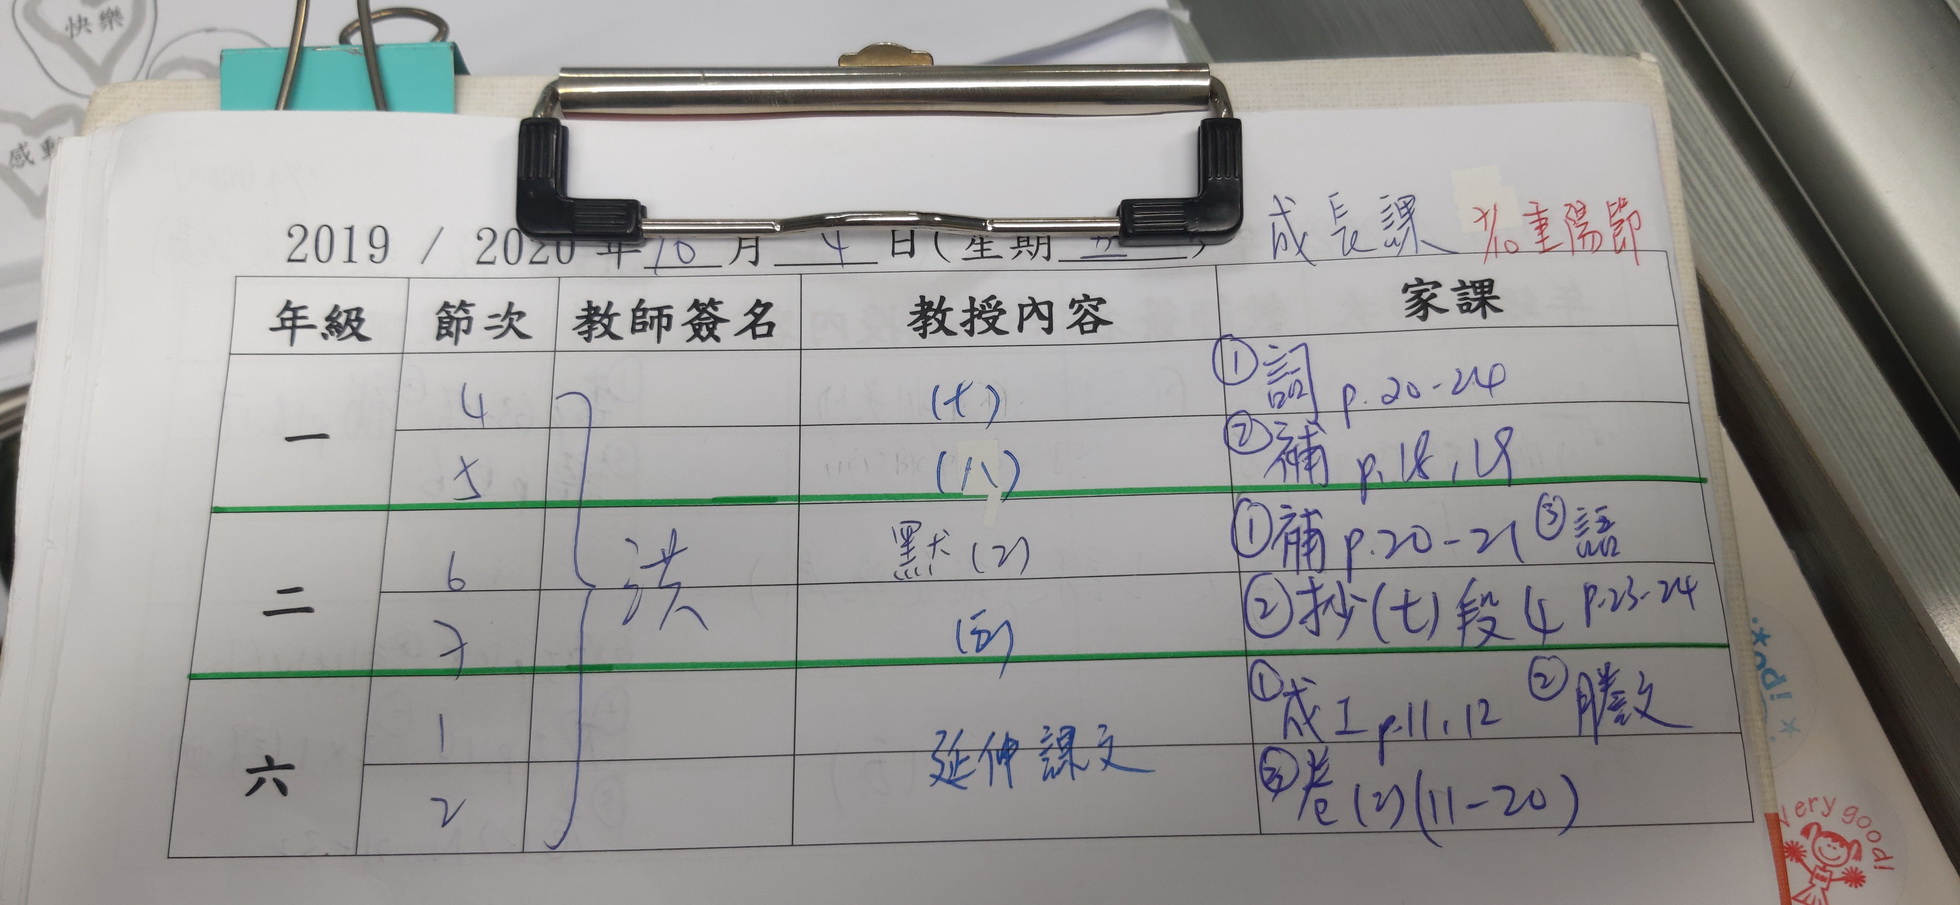 快樂
感動
成長課 7/10重陽節
2019 / 2020 年 10 月 4 日(星期 五 )
年級 節次 教師簽名 教授內容 家課
一 4 (七) ①詞 p.20-24
5 (八) ②補 p.18,19
二 6 洪 默(2) ①補 p.20-21 ③語 p.23-24
7 (五) ②抄(七)段4
六 1 延伸課文 ①成工 p.11,12 ②謄文
2 ③卷(2)(11-20)
Very good!